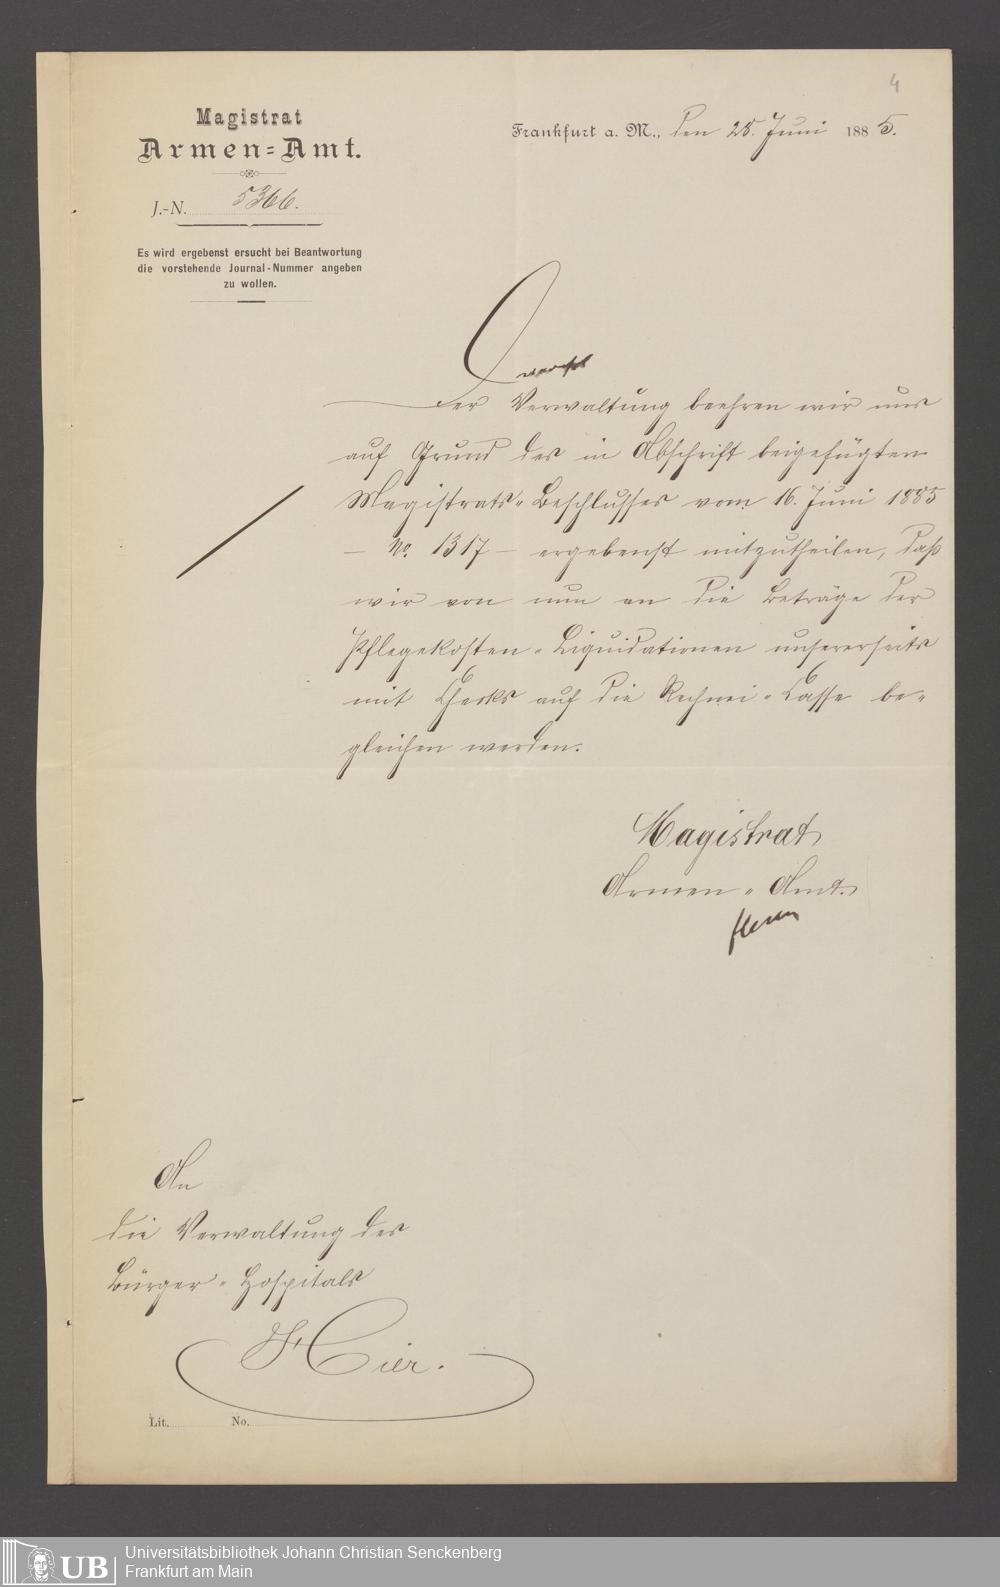 4
Magistrat
Armen=Amt.
J.-N. 5366.
Es wird ergebenst ersucht bei Beantwortung
die vorstehende Journal-Nummer angeben
zu wollen.
Frankfurt a. M., den 25. Juni 1885.
Der Verwaltung beehren wir uns
auf Grund des in Abschrift beigefügten
Magistrats-Beschlusses vom 16. Juni 1885
– No. 1317 – ergebenst mitzutheilen, daß
wir von nun an die Beträge der
Pflegekosten-Liquidationen unsererseits
mit Checks auf die Rechnei-Casse be-
gleichen werden.
Magistrat
Armen-Amt.
An
die Verwaltung des
Bürger-Hospitals
Hier.
Lit. No.
UB
Universitätsbibliothek Johann Christian Senckenberg
Frankfurt am Main